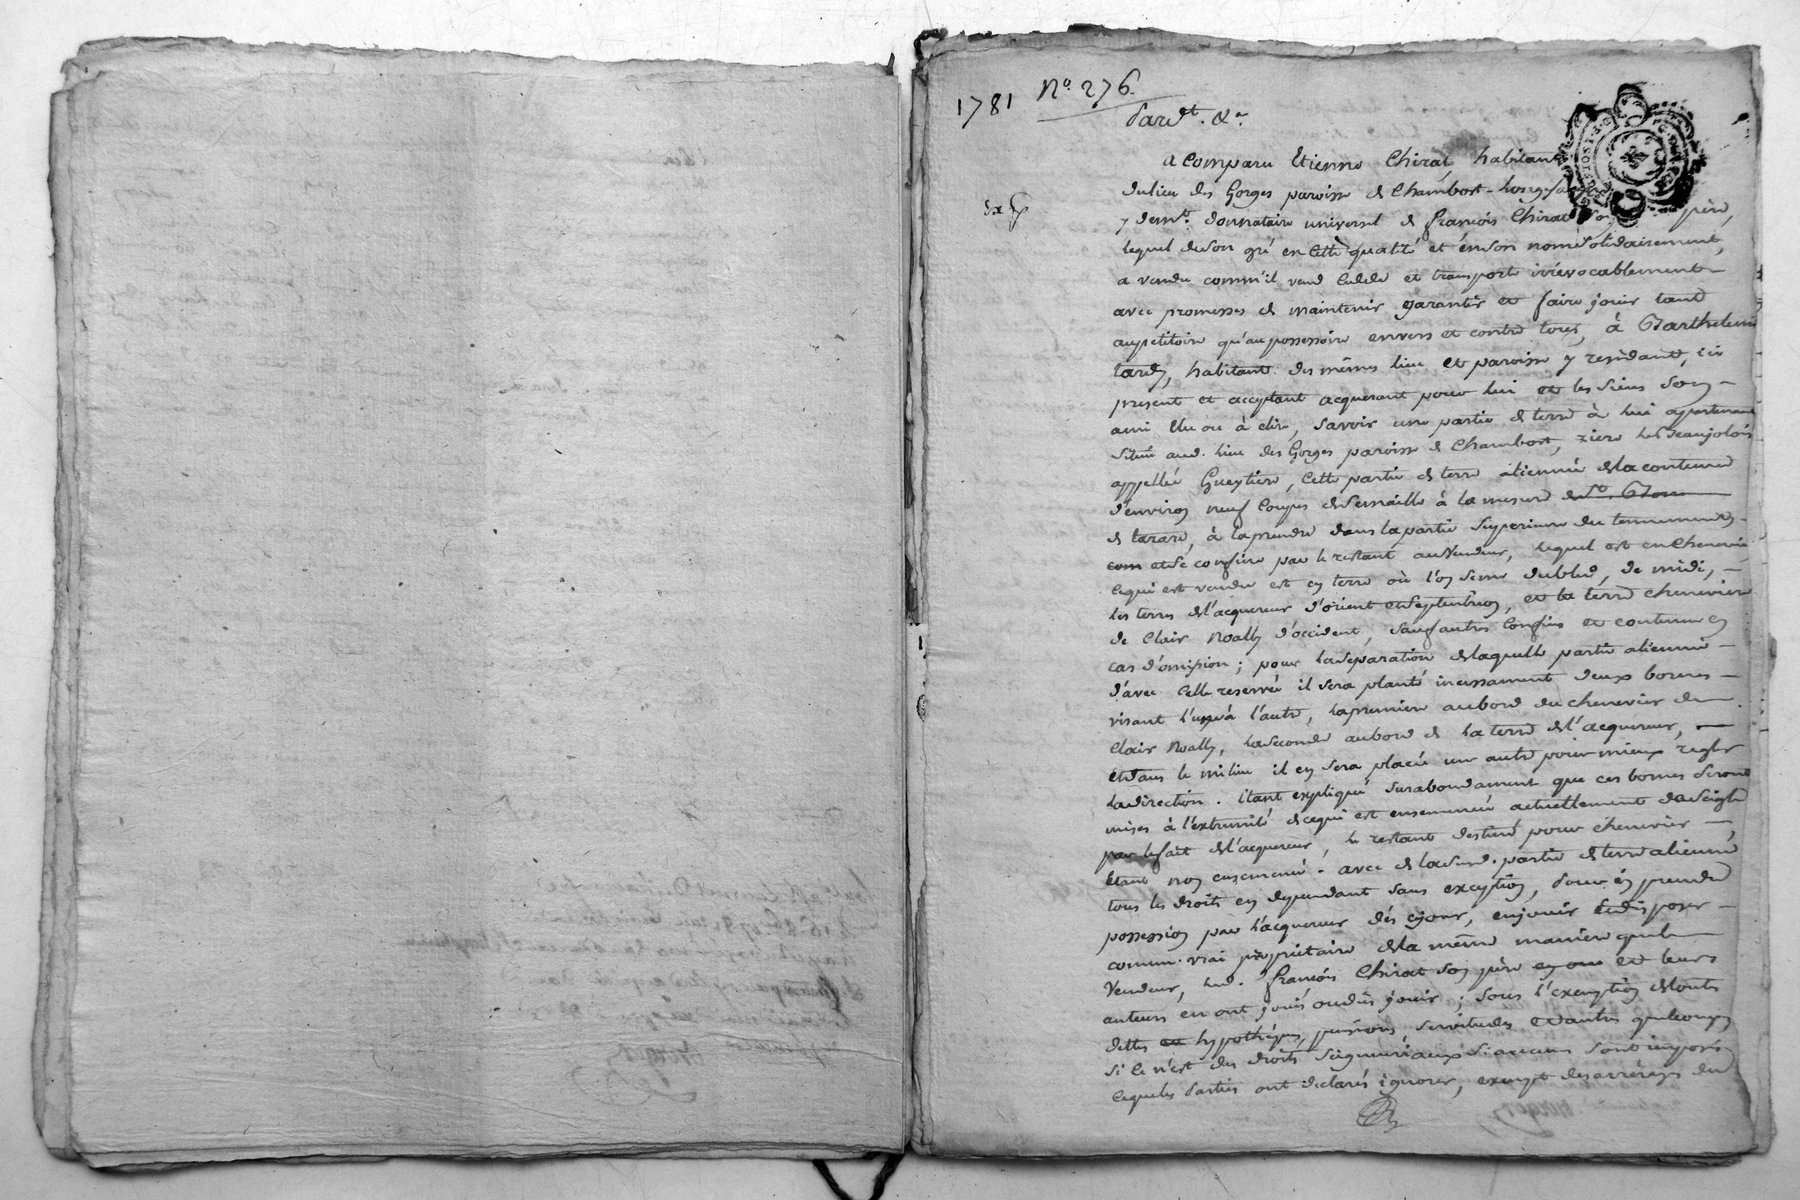 1781
N.º 276.
Pardt. &a.
a Comparu Etienne Chirat habitant
du lieu des Gorges paroisse de Chambost-Longes
y demt. donnataire universel de françois Chirat son père,
lequel de son gré en cette qualité et en son nom solidairement,
a vendu comm'il vend cedde et transporte irrévocablement
avec promesses de maintenir garantir et faire jouir tant
au petitoire qu'au possessoire envers et contre tous, à Barthelemi
tardy, habitant des mêmes lieu et paroisse y residant, ici
present et acceptant acquerant pour lui et les siens son
ami Elu ou à elire, Savoir une partie de terre à lui apartenant
située aud. lieu des Gorges paroisse de Chambost, en Beaujolois
appellée, Cette partie de terre alienée de la contenue
d'environ neuf Coupes de Semaille à la mesure de St. Bon
de tarare, à la prendre dans la partie Superieure du tennement
com et se confine par le restant au Vendeur, lequel est en Chenevier,
ce qui est vendu est en terre où l'on seme du bled, de midi,
les terres de l'acquereur d'orient et Septentrion, et la terre chenevier
de Clair Noally d'occident, Sauf autres Confins et contenue en
cas d'omission; pour la Separation de laquelle partie alienée
d'avec Celle reservée il sera planté incessament deux bornes
visant l'une à l'autre, la premiere au bord du chenevier de
Clair Noally, la Seconde au bord de la terre de l'acquereur,
et dans le milieu il en sera placée une autre pour mieux regler
la direction. Etant expliqué surabondament que ces bornes Seront
mises à l'extremité de ce qui est ensemencé actuellement de Seigle
par le fait de l'acquereur, le restant destiné pour chenevier,
étant non ensemencé. avec de lad. partie de terre alienée
tous les droits en dependant sans exception, pour en prendre
possession par l'acquereur dés ce jour, en jouir et disposer
comme vrai proprietaire de la même maniere que le
Vendeur, led. françois Chirat son père et leurs
auteurs en ont jouis ou dus jouir; sous l'exemption de touts
dettes hypothéques, pensions servitudes et autres quelconques
Si ce n'est des droits Seigneuriaux si aucuns sont imposés
lesquels Parties ont declarés ignorer, exempt des arrérages du